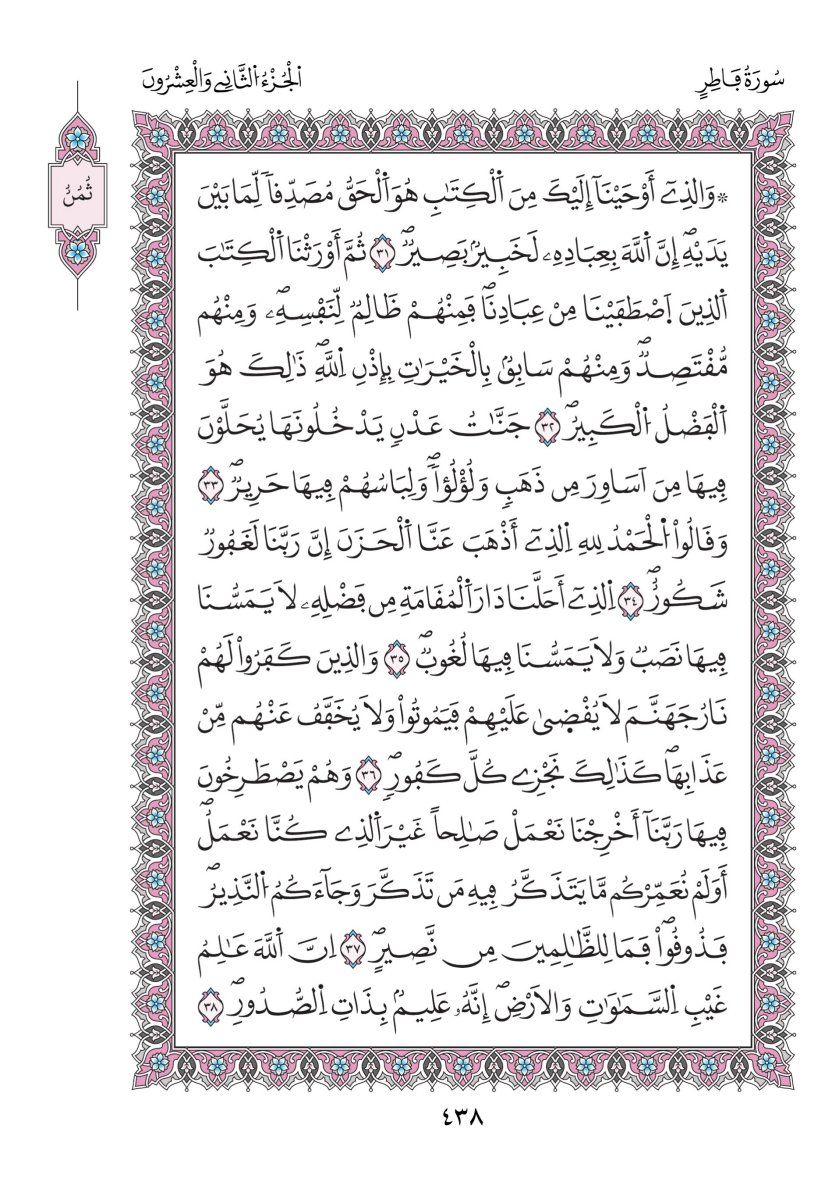 سُورَةُ فَاطِرٍ
اَلْجُزْءُ اَلثَّانِے وَالْعِشْرُونَ
ثُمُنُ
* وَالذِےٓ أَوْحَيْنَآ إِلَيْكَ مِنَ اَلْكِتَٰبِ هُوَ اَلْحَقُّ مُصَدِّقاٗ لِّمَا بَيْنَ
يَدَيْهِۖ إِنَّ اَللَّهَ بِعِبَادِهِۦ لَخَبِيرُۢ بَصِيرٞۖ ٣١ ثُمَّ أَوْرَثْنَا اَلْكِتَٰبَ
اَلذِينَ اَصْطَفَيْنَا مِنْ عِبَادِنَاۖ فَمِنْهُمْ ظَالِمٞ لِّنَفْسِهِۖۦ وَمِنْهُم
مُّقْتَصِدٞۖ وَمِنْهُمْ سَابِقُۢ بِالْخَيْرَٰتِ بِإِذْنِ اِللَّهِۖ ذَٰلِكَ هُوَ
اَلْفَضْلُ اُلْكَبِيرُۖ ٣٢ جَنَّٰتُ عَدْنٖ يَدْخُلُونَهَا يُحَلَّوْنَ
فِيهَا مِنَ اَسَاوِرَ مِن ذَهَبٖ وَلُؤْلُؤاٗۖ وَلِبَاسُهُمْ فِيهَا حَرِيرٞۖ ٣٣
وَقَالُواْ اُلْحَمْدُ لِلهِ اِلذِےٓ أَذْهَبَ عَنَّا اَلْحَزَنَ إِنَّ رَبَّنَا لَغَفُورٞ
شَكُورٌۖ ٣٤ اِلذِےٓ أَحَلَّنَا دَارَ اَلْمُقَامَةِ مِن فَضْلِهِۦ لَا يَمَسُّنَا
فِيهَا نَصَبٞ وَلَا يَمَسُّنَا فِيهَا لُغُوبٞۖ ٣٥ وَالذِينَ كَفَرُواْ لَهُمْ
نَارُ جَهَنَّمَ لَا يُقْضَىٰ عَلَيْهِمْ فَيَمُوتُواْ وَلَا يُخَفَّفُ عَنْهُم مِّنْ
عَذَابِهَاۖ كَذَٰلِكَ نَجْزِے كُلَّ كَفُورٖۖ ٣٦ وَهُمْ يَصْطَرِخُونَ
فِيهَا رَبَّنَآ أَخْرِجْنَا نَعْمَلْ صَٰلِحاً غَيْرَ اَلذِے كُنَّا نَعْمَلُۖ
أَوَلَمْ نُعَمِّرْكُم مَّا يَتَذَكَّرُ فِيهِ مَن تَذَكَّرَ وَجَآءَكُمُ اُلنَّذِيرُۖ
فَذُوقُواْۖ فَمَا لِلظَّٰلِمِينَ مِن نَّصِيرٍۖ ٣٧ اِنَّ اَللَّهَ عَٰلِمُ
غَيْبِ اِلسَّمَٰوَٰتِ وَالَارْضِۖ إِنَّهُۥ عَلِيمُۢ بِذَاتِ اِلصُّدُورِۖ ٣٨
٤٣٨